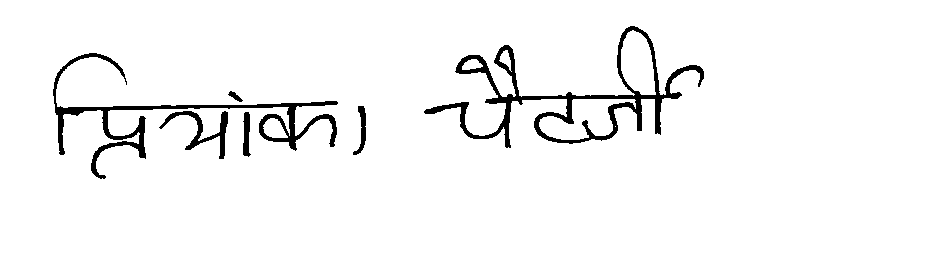 प्रियांका चैटर्जी